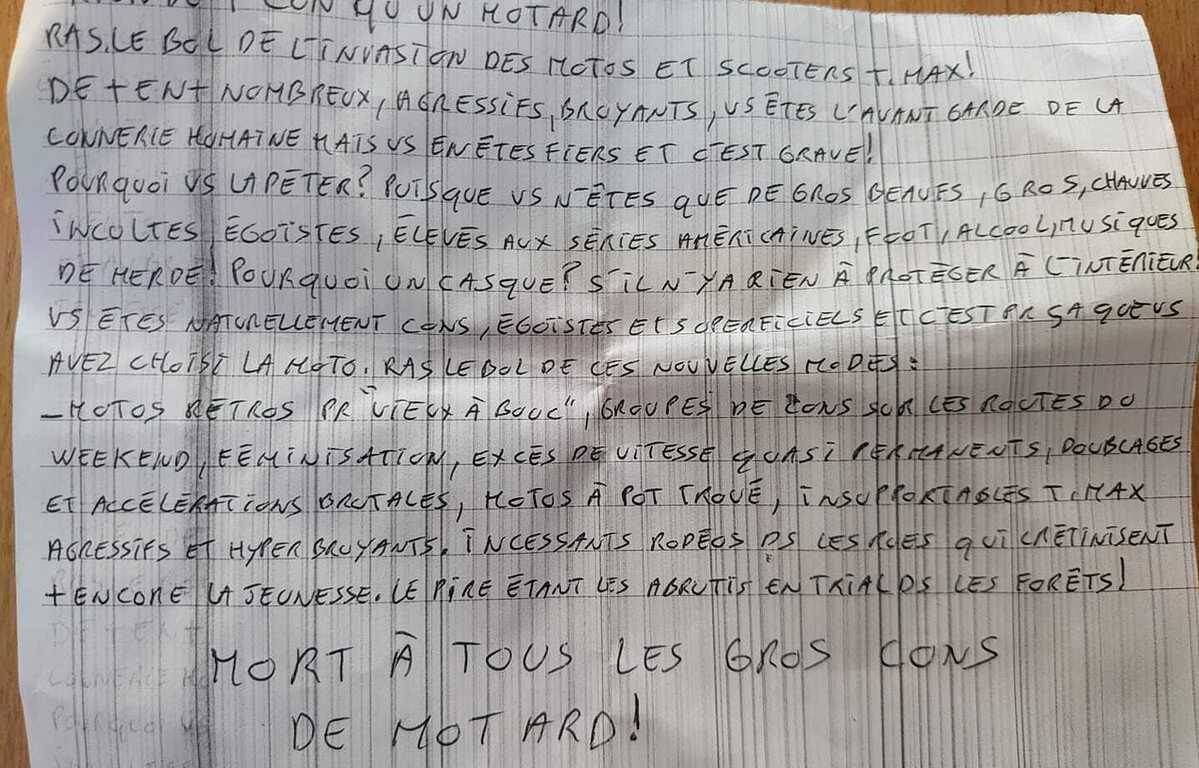 CON QU'UN MOTARD!
RAS.LE BOL DE L'INVASION DES MOTOS ET SCOOTERS T.MAX!
DE + EN + NOMBREUX, AGRESSIFS, BRUYANTS, VS ÊTES L'AVANT GARDE DE LA
CONNERIE HUMAINE MAIS VS EN ÊTES FIERS ET C'EST GRAVE!
POURQUOI VS LA PÉTER? PUISQUE VS N'ÊTES QUE DE GROS BEAUFS, GROS, CHAUVES
INCULTES, ÉGOÏSTES, ÉLEVÉS AUX SÉRIES AMÉRICAINES, FOOT, ALCOOL, MUSIQUES
DE MERDE! POURQUOI UN CASQUE? S'IL N'Y A RIEN À PROTÉGER À L'INTÉRIEUR!
VS ÊTES NATURELLEMENT CONS, ÉGOÏSTES ET SUPERFICIELS ET C'EST PR ÇA QUE VS
AVEZ CHOISI LA MOTO. RAS LE BOL DE CES NOUVELLES MODES:
_MOTOS RÉTROS PR "VIEUX À BOUC", GROUPES DE CONS SUR LES ROUTES DU
WEEKEND, FÉMINISATION, EXCÈS DE VITESSE QUASI PERMANENTS, DOUBLAGES
ET ACCÉLÉRATIONS BRUTALES, MOTOS À POT TROUÉ, INSUPPORTABLES T.MAX
AGRESSIFS ET HYPER BRUYANTS. INCESSANTS RODÉOS DS LES RUES QUI CRÉTINISENT
+ ENCORE LA JEUNESSE. LE PIRE ÉTANT LES ABRUTIS EN TRIAL DS LES FORÊTS!
MORT À TOUS LES GROS CONS
DE MOTARD!